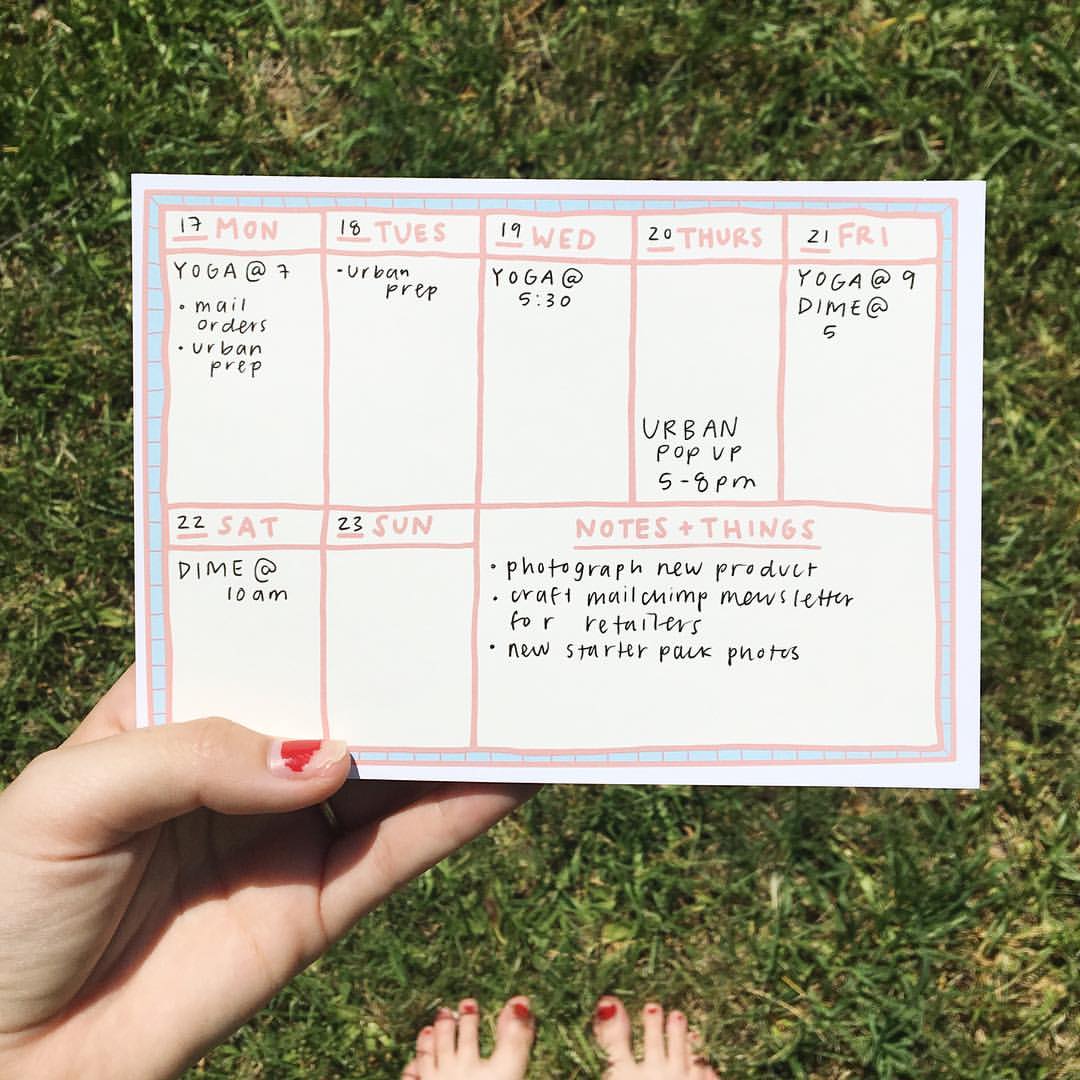 17 MON
YOGA @ 7
• mail
orders
• urban
prep
18 TUES
- urban
prep
19 WED
YOGA @
5:30
20 THURS
URBAN
POP UP
5-8pm
21 FRI
YOGA @ 9
DIME @
5
22 SAT
DIME @
10am
23 SUN
NOTES + THINGS
• photograph new product
• craft mailchimp mewsletter
for retailers
• new starter pack photos